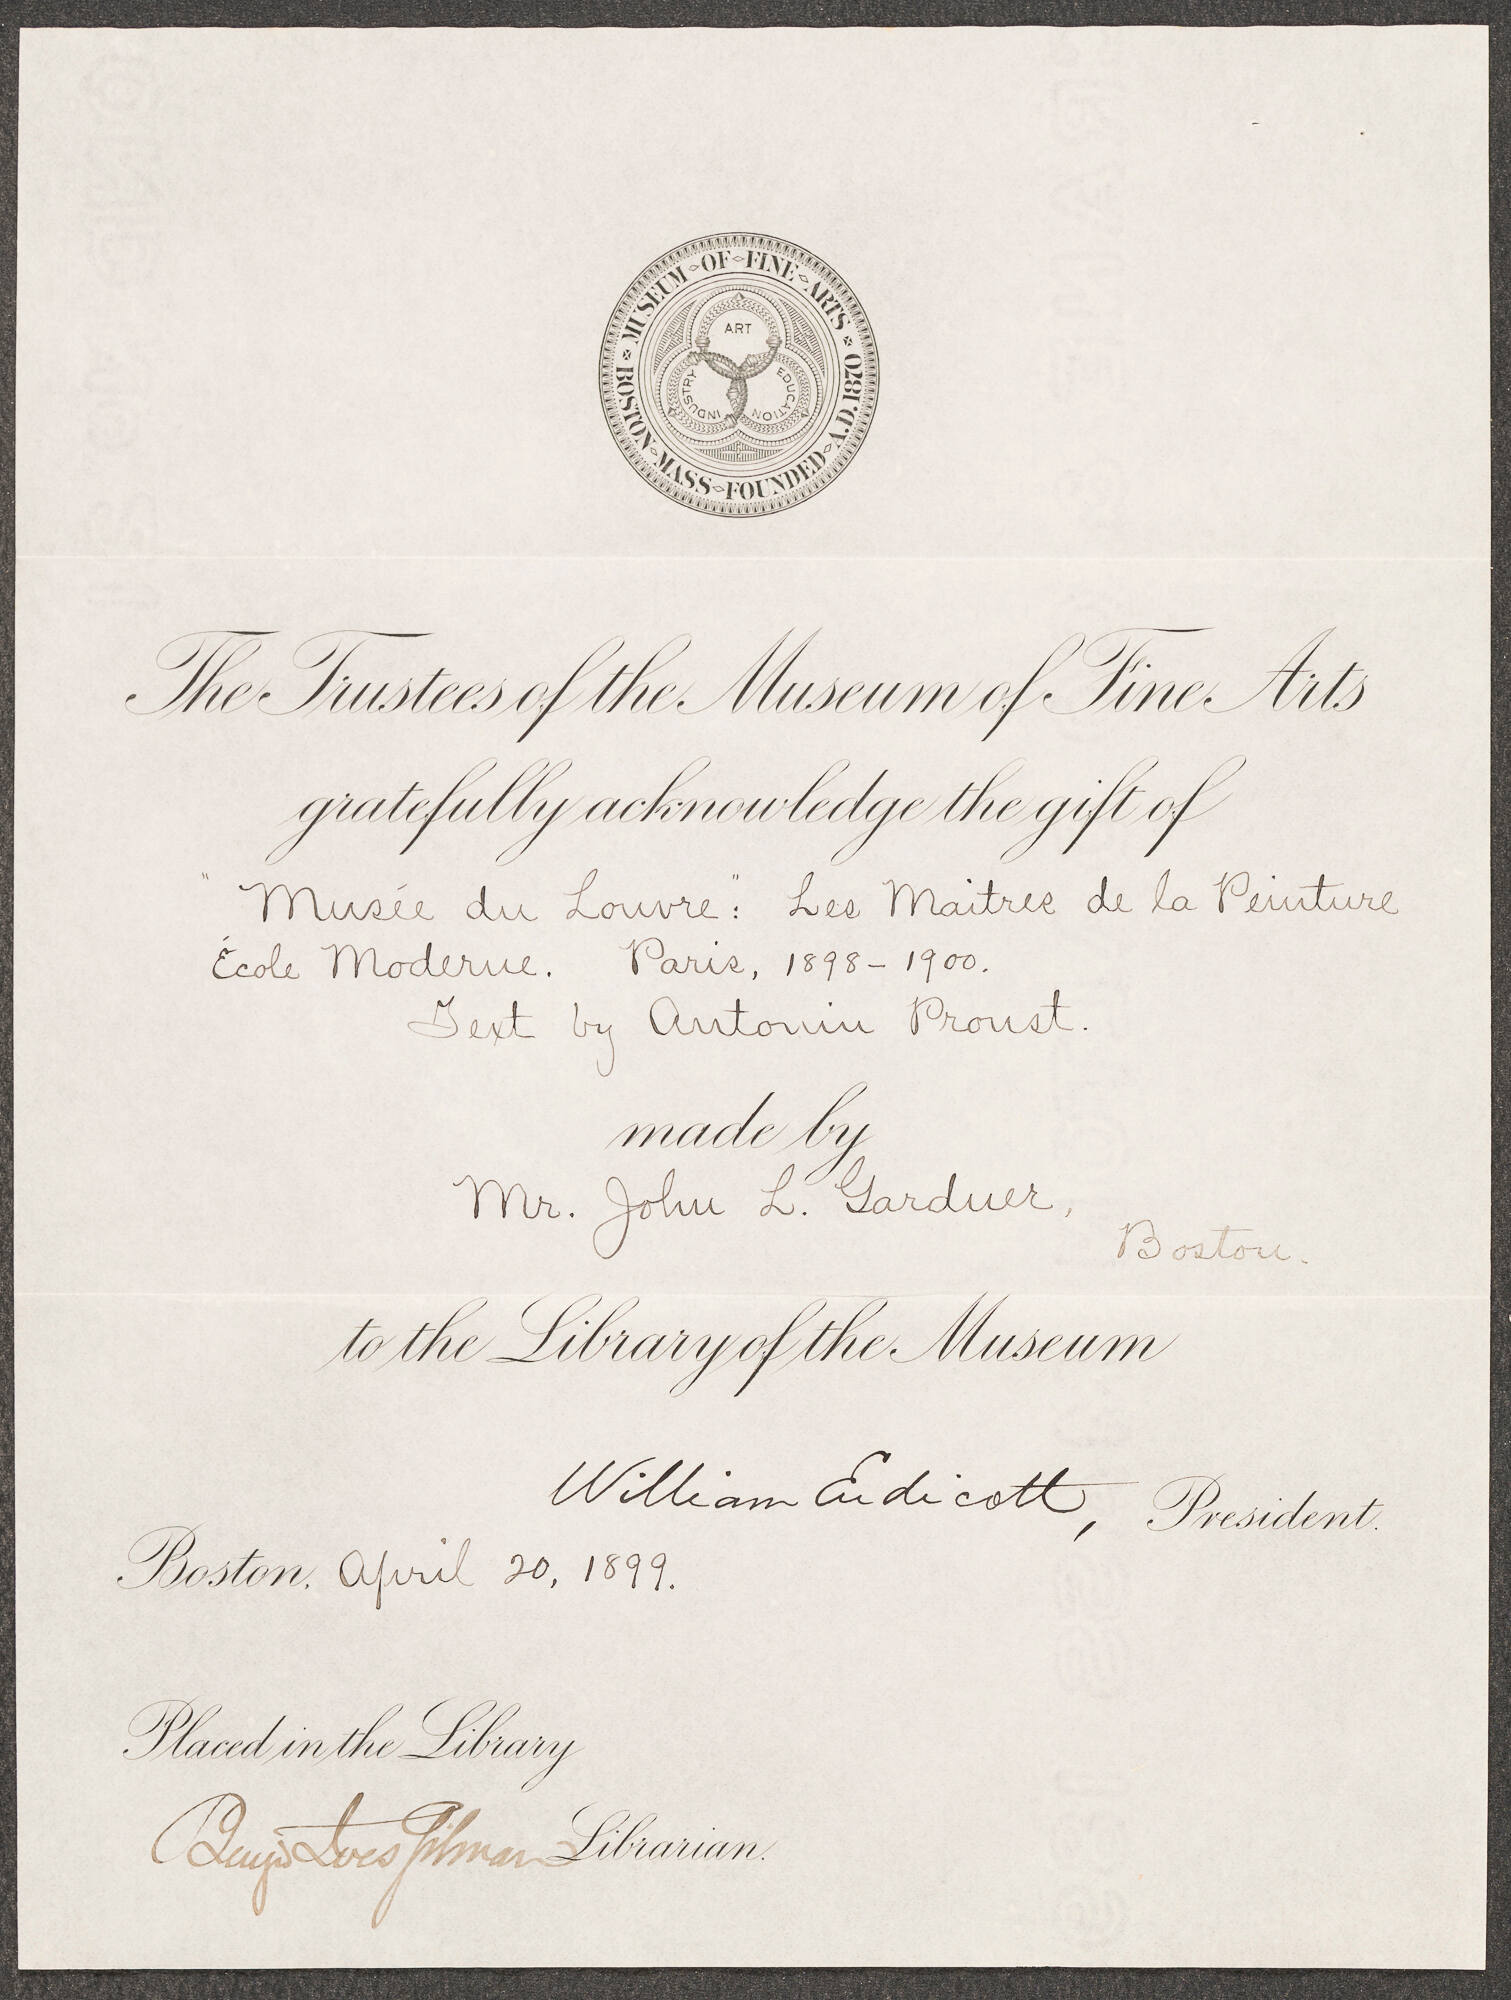 MUSEUM OF FINE ARTS
BOSTON MASS FOUNDED A.D. 1870
ART
INDUSTRY
EDUCATION
The Trustees of the Museum of Fine Arts
gratefully acknowledge the gift of
"Musée du Louvre": Les Maitres de la Peinture
École Moderne. Paris, 1898-1900.
Text by Antonin Proust.
made by
Mr. John L. Gardner,
Boston.
to the Library of the Museum
William Endicott, President.
Boston, April 20, 1899.
Placed in the Library
Benj. Ives Gilman Librarian.